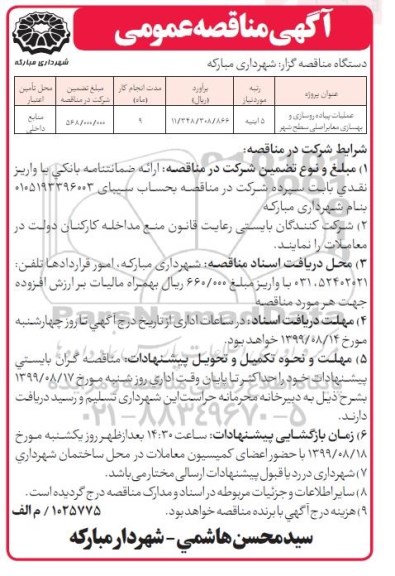 آگهی مناقصه عمومی
شهرداری مبارکه
دستگاه مناقصه گزار: شهرداری مبارکه
عنوان پروژه
رتبه موردنیاز
برآورد (ریال)
مدت انجام کار (ماه)
مبلغ تضمین شرکت در مناقصه
محل تأمین اعتبار
عملیات پیاده روسازی و بهسازی معابر اصلی سطح شهر
۵ ابنیه
۹
۵۶۸/۰۰۰/۰۰۰
منابع داخلی
شرایط شرکت در مناقصه:
۱) مبلغ و نوع تضمین شرکت در مناقصه: ارائه ضمانتنامه بانکي یا واریز
نقدي بابت سپرده شرکت در مناقصه بحساب سیبای ۰۱۰۵۱۹۳۳۹۶۰۰۳
بنام شهرداری مبارکه
۲) شرکت کنندگان بایستي رعایت قانون منع مداخله کارکنان دولت در
معاملات را نمایند.
۳) محل دریافت اسناد مناقصه: شهرداری مبارکه، امور قراردادها تلفن:
۰۳۱،۵۲۴۰۲۰۲۱ با واریز مبلغ ۶۶۰/۰۰۰ ریال بهمراه مالیات بر ارزش افزوده
جهت هر مورد مناقصه
۴) مهلت دریافت اسناد: در ساعات اداری از تاریخ درج آگهي تا روز چهارشنبه
مورخ ۱۳۹۹/۰۸/۱۴ خواهد بود.
۵) مهلت و نحوه تکمیل و تحویل پیشنهادات: مناقصه گران بایستي
پیشنهادات خود را حداکثر تا پایان وقت اداري روز شنبه مورخ ۱۳۹۹/۰۸/۱۷
بشرح ذیل به دبیرخانه محرمانه حراست این شهرداری تسلیم و رسید دریافت
دارند.
۶) زمان بازگشایی پیشنهادات: ساعت ۱۴:۳۰ بعدازظهر روز یکشنبه مورخ
۱۳۹۹/۰۸/۱۸ با حضور اعضای کمیسیون معاملات در محل ساختمان شهرداري
۷) شهرداری در رد یا قبول پیشنهادات ارسالی مختار می‌باشد.
۸) سایر اطلاعات و جزئیات مربوطه در اسناد و مدارک مناقصه درج گردیده است.
۹) هزینه درج آگهي با برنده مناقصه خواهد بود.
۱۰۲۵۷۷۵ / م الف
سید محسن هاشمي - شهردار مبارکه
۰۲۱-۸۸۳۴۹۶۷۰-۵